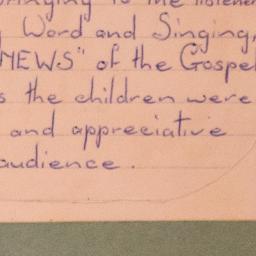 bringing to the listener
Word and Singing,
NEWS" of the Gospel
the children were
and appreciative
audience.